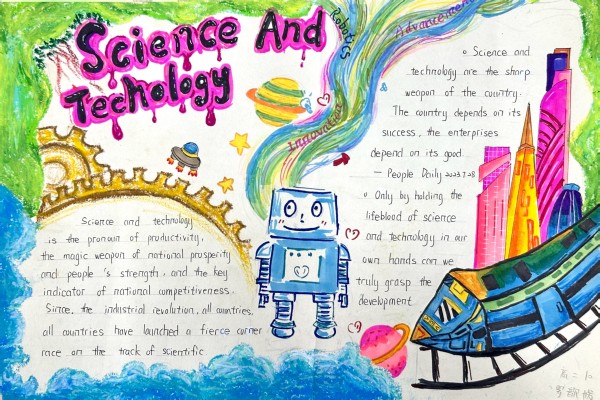 Science And
Techology
Robotics
Advancement
Innovation
Science and
technology are the sharp
weapon of the country.
The country depends on its
success, the enterprises
depend on its good.
— People Daily 2023.7.28
Only by holding the
lifeblood of science
and technology in our
own hands can we
truly grasp the
development
Science and technology
is the pronoun of productivity,
the magic weapon of national prosperity
and people's strength, and the key
indicator of national competitiveness.
Since, the industrial revolution, all countries.
all countries have launched a fierce corner
race on the track of scientific
高二